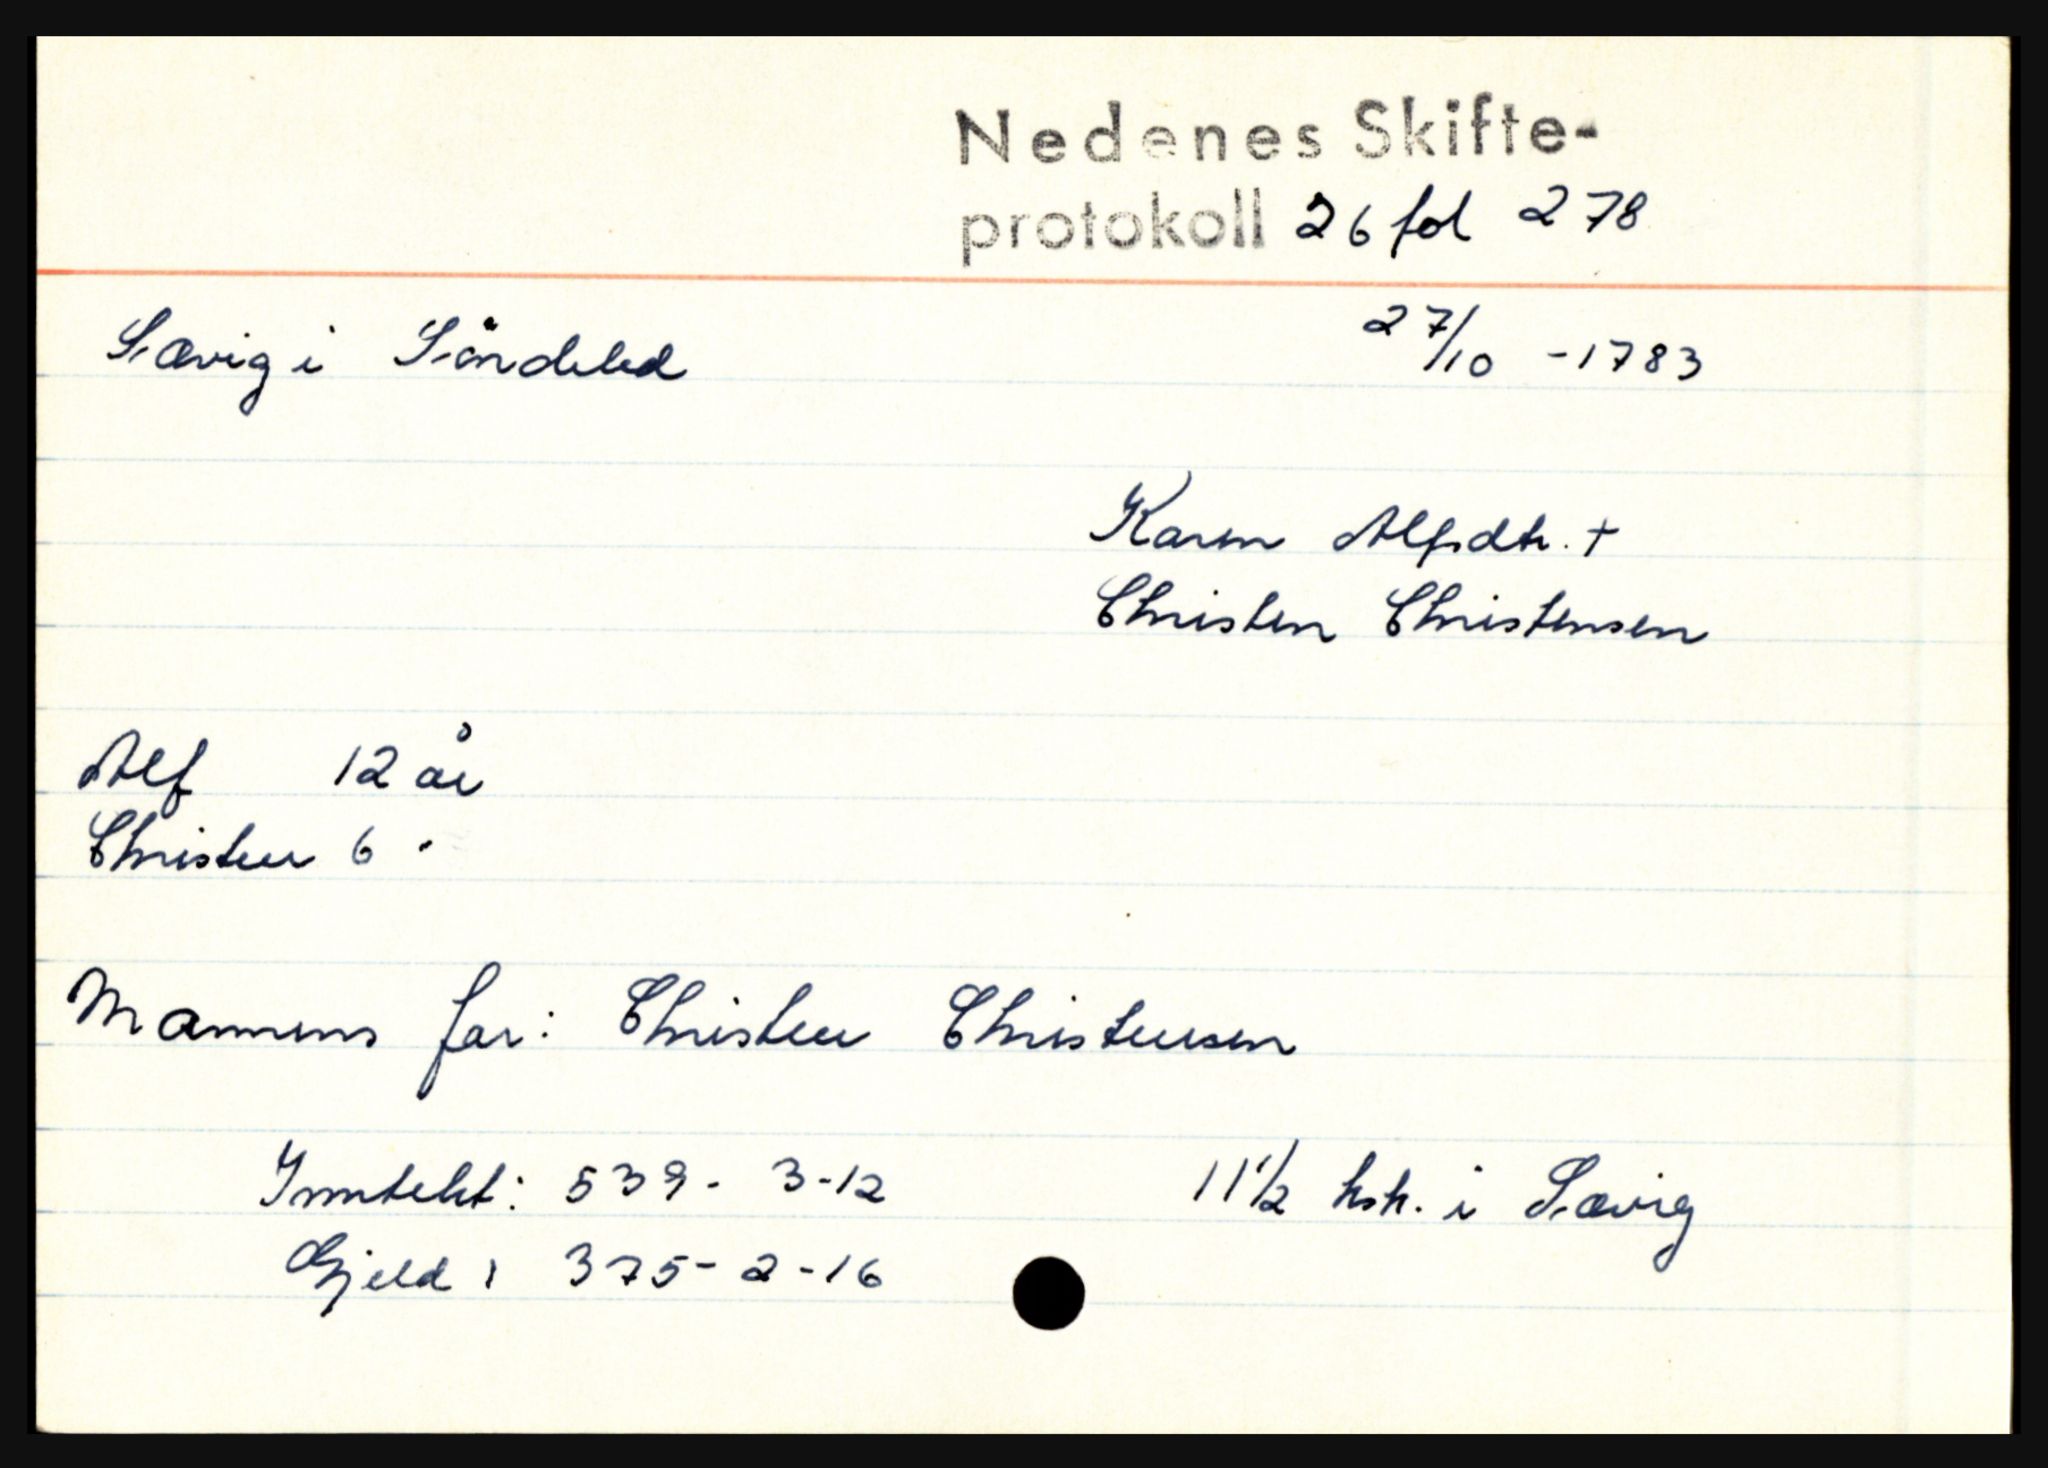 Nedenes Skifte-
protokoll 26 fol 278
Sævig i Søndeled 27/10 -1783
Karen Alfsdtr. +
Christen Christensen
Alf 12 år
Christen 6 "
Mannens far: Christen Christensen
Inntekt: 539 - 3-12 11 1/2 hsk. i Sævig
Gjeld: 375- 2-16